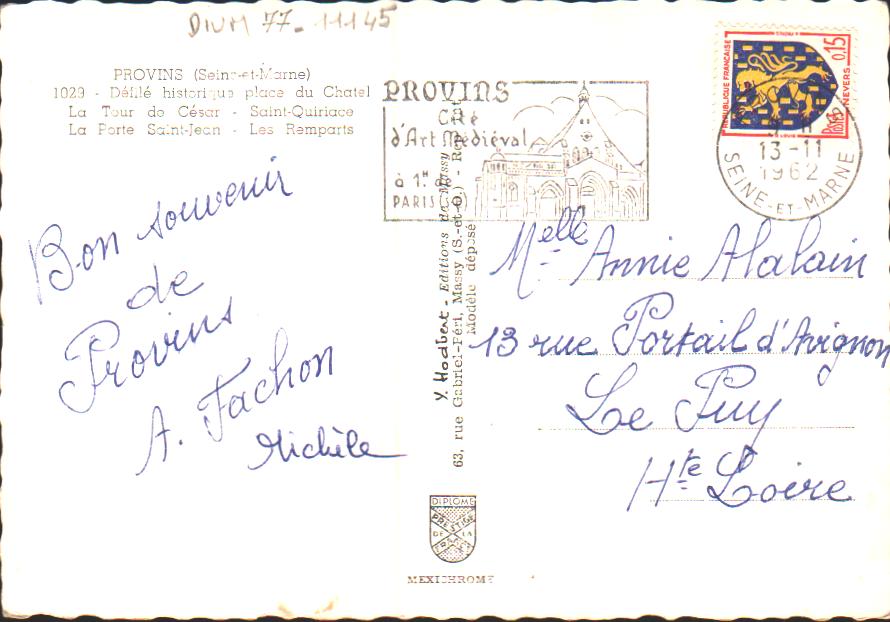 DIVM 77-11145
PROVINS (Seine-et-Marne)
1029 - Défilé historique place du Chatel
La Tour de César - Saint-Quiriace
La Porte Saint-Jean - Les Remparts
Bon souvenir
de
Provins
A. Fachon
Michèle
PROVINS
Cité
d'Art Médiéval
à 1.H de
PARIS
REPUBLIQUE FRANÇAISE
0,15
NEVERS
Postes
13-11
1962
SEINE-ET-MARNE
Y. Hodbert - Editions de Massy
63, rue Gabriel-Péri, Massy (S.-et-O.)
Modèle déposé
Melle Annie Alalain
13 rue Portail d'Avignon
Le Puy
Hte Loire
DIPLOME
PRESTIGE
DE LA
FRANCE
MEXICHROME